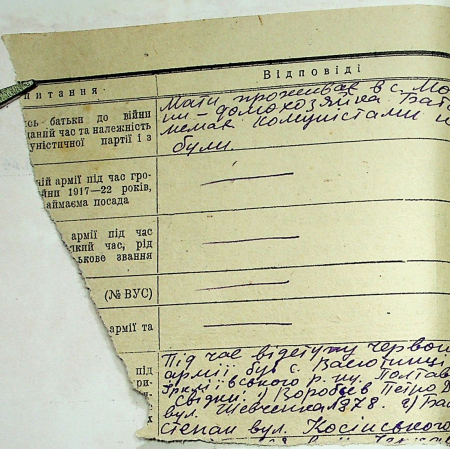 питання Відповіді
сь батьки до війни
даний час та належність
уністичної партії і з
Мати проживає в с. Мо
ни – домохозяйка Бать
немає Комуністами н
були
ній армії під час гро-
йни 1917—22 років,
займаєма посада
армії під час
який час, рід
ькове звання
(№ ВУС)
армії та
під
ри-
Під час відступу Червон
армії, був с. Васютинці
р-ну Полтав
Свідки: 1) Воробйов Петро Д
вул. Шевченка 278. 2) Ба
степан вул. Косінського